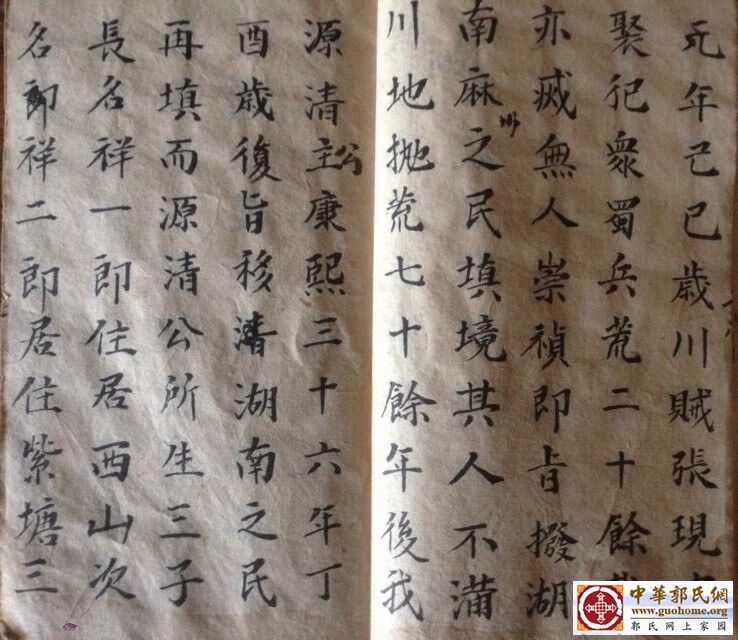 元年己巳歳川賊張現
聚犯衆蜀兵荒二十餘
亦烕無人崇禎即旨撥湖
南麻之民填境其人不滿
川地拋荒七十餘年後我
源清主公康熙三十六年丁
酉歳復旨移湖南之民
再填而源清公所生三子
長名祥一郎住居西山次
名郎祥二郎居住紫塘三
中華郭氏網
www.guohome.org
郭氏网上家园